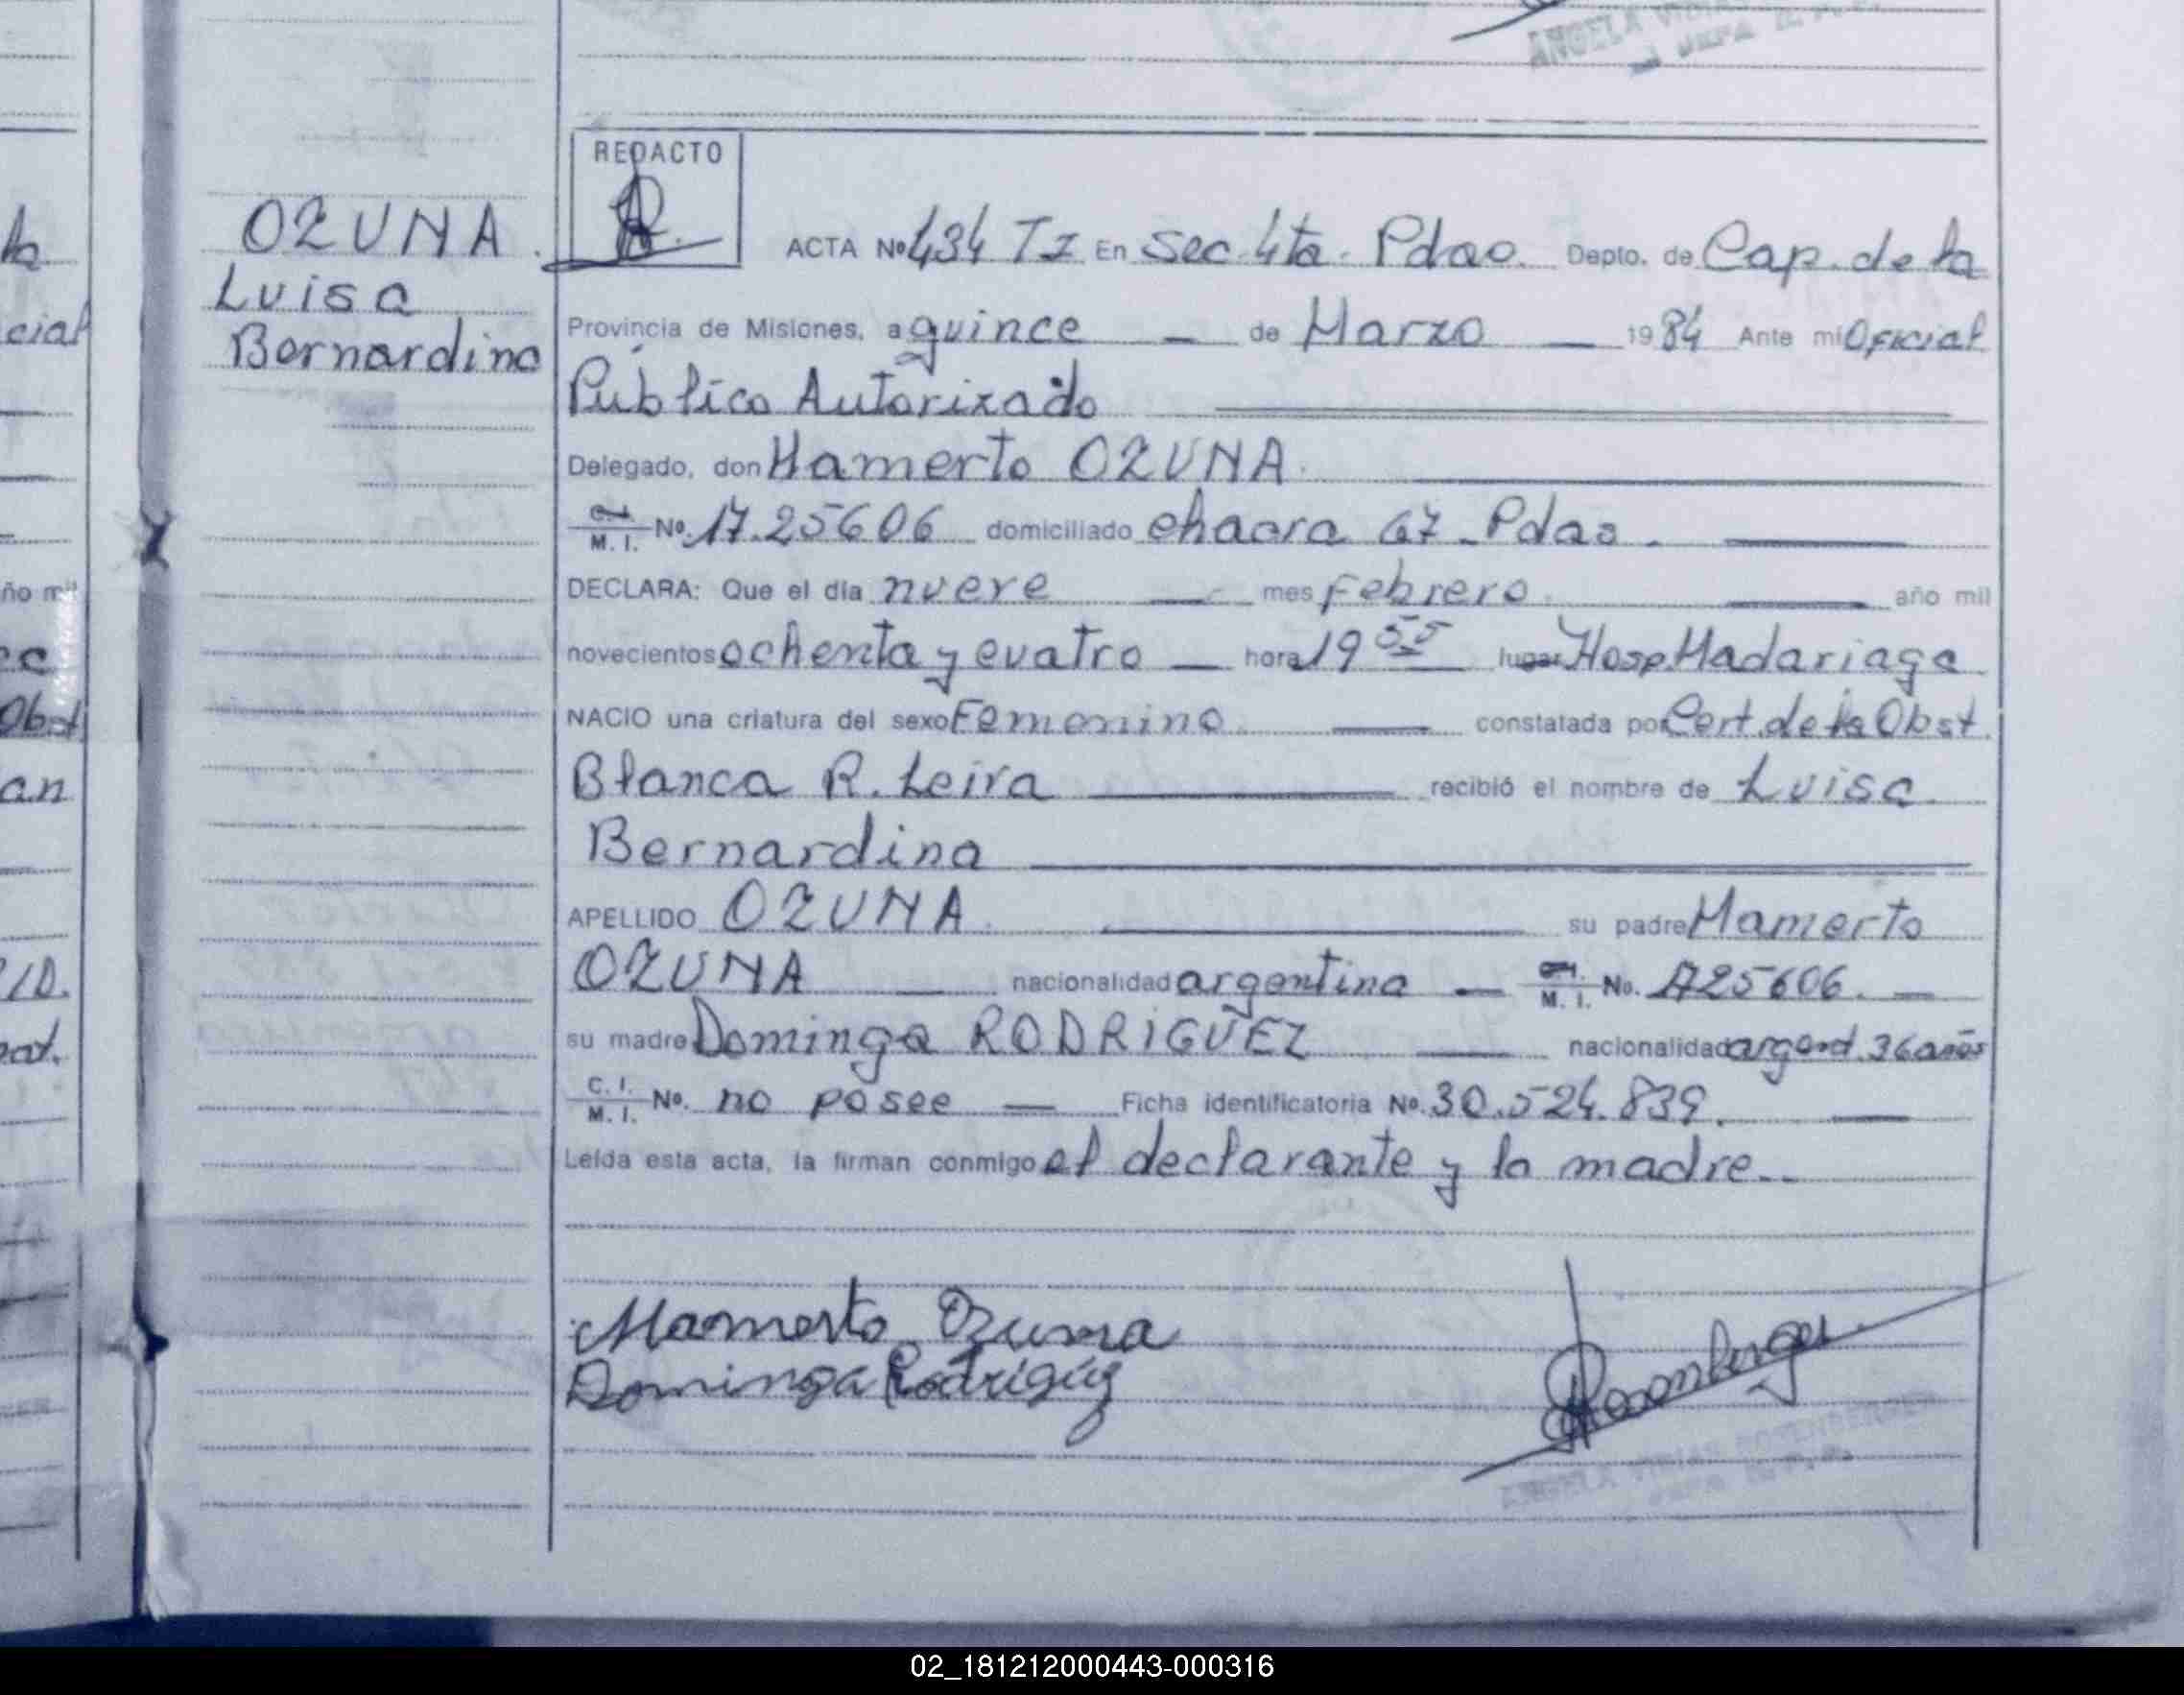 ANGELA
JEFA
REDACTO
OZUNA
Luisa
Bernardina
ACTA Nº 434 TI En Sec. 4ta. Pdas. Depto. de Cap. de la
Provincia de Misiones, a quince — de Marzo — 1984 Ante mi Oficial
Público Autorizado
Delegado, don Mamerto OZUNA.
C.I. M. I. Nº. 1725606 domiciliado chacra 67 - Pdas. —
DECLARA: Que el día nueve — mes Febrero. — año mil
novecientos ochenta y cuatro — hora 19 55 lugar Hosp. Madariaga
NACIO una criatura del sexo Femenino — constatada por Cert. de la Obst.
Blanca R. Leiva — recibió el nombre de Luisa
Bernardina
APELLIDO OZUNA. — su padre Mamerto
OZUNA — nacionalidad argentina — C.I. M. I. No. 1725606. —
su madre Dominga RODRIGUEZ — nacionalidad argent. 36 años
C. I. M. I. Nº. no posee — Ficha identificatoria Nº. 30.524.839. —
Leída esta acta, la firman conmigo el declarante y la madre.--
Mamerto Ozuna
Dominga Rodriguez
Rosenberger
ANGELA
02_181212000443-000316